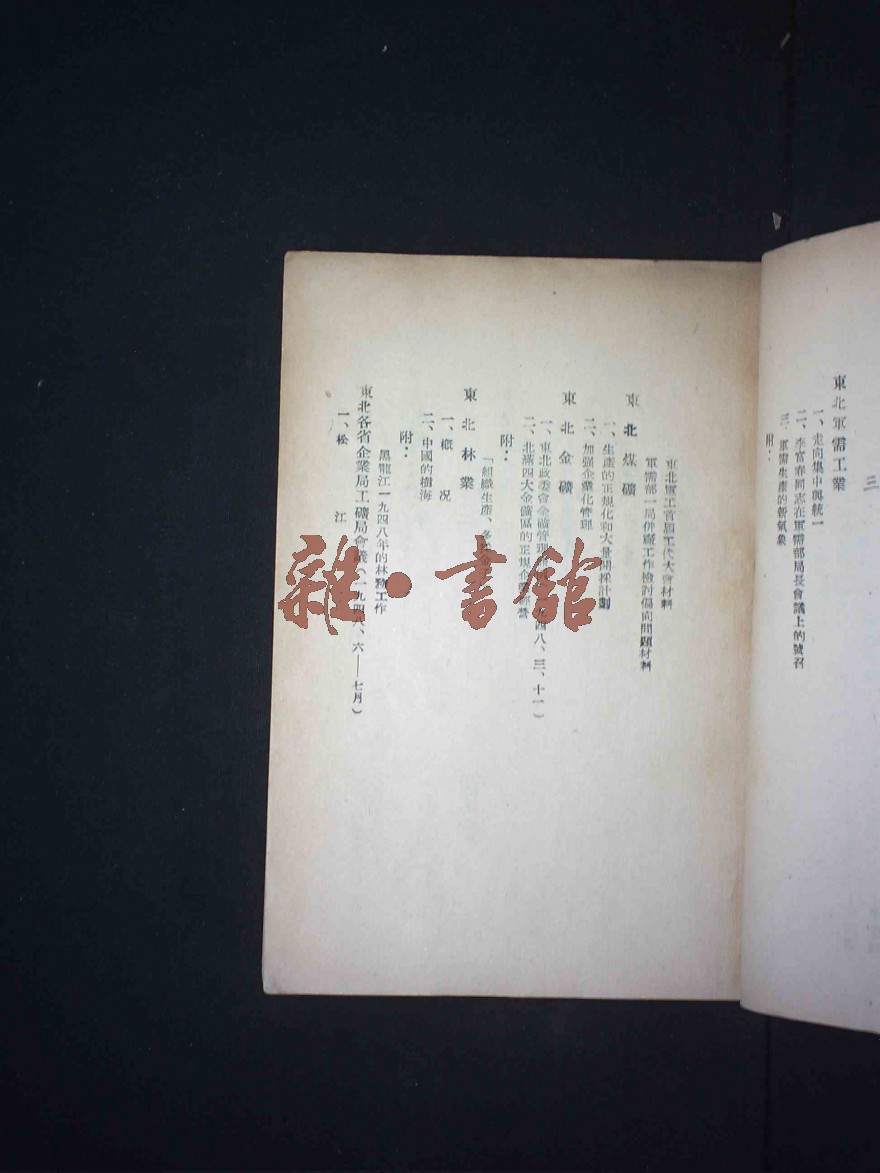 三
東北軍需工業
一、走向集中與統一
二、李富春同志在軍需部局長會議上的號召
三、軍需生產的新氣象
附：
東北軍工首屆工代大會材料
軍需部一局併廠工作檢討偏向問題材料
東北煤礦
一、生產的正規化和大量開採計劃
二、加强企業化管理
東北金礦
一、東北政委會金礦管理 九四八、三、十一）
二、北滿四大金礦區的正規 經營
附：
「組織生產、多
東北林業
一、概況
二、中國的樹海
附：
黑龍江一九四八年的林務工作
東北各省企業局工礦局會議（一九四八、六——七月）
一、松江
雜·書館